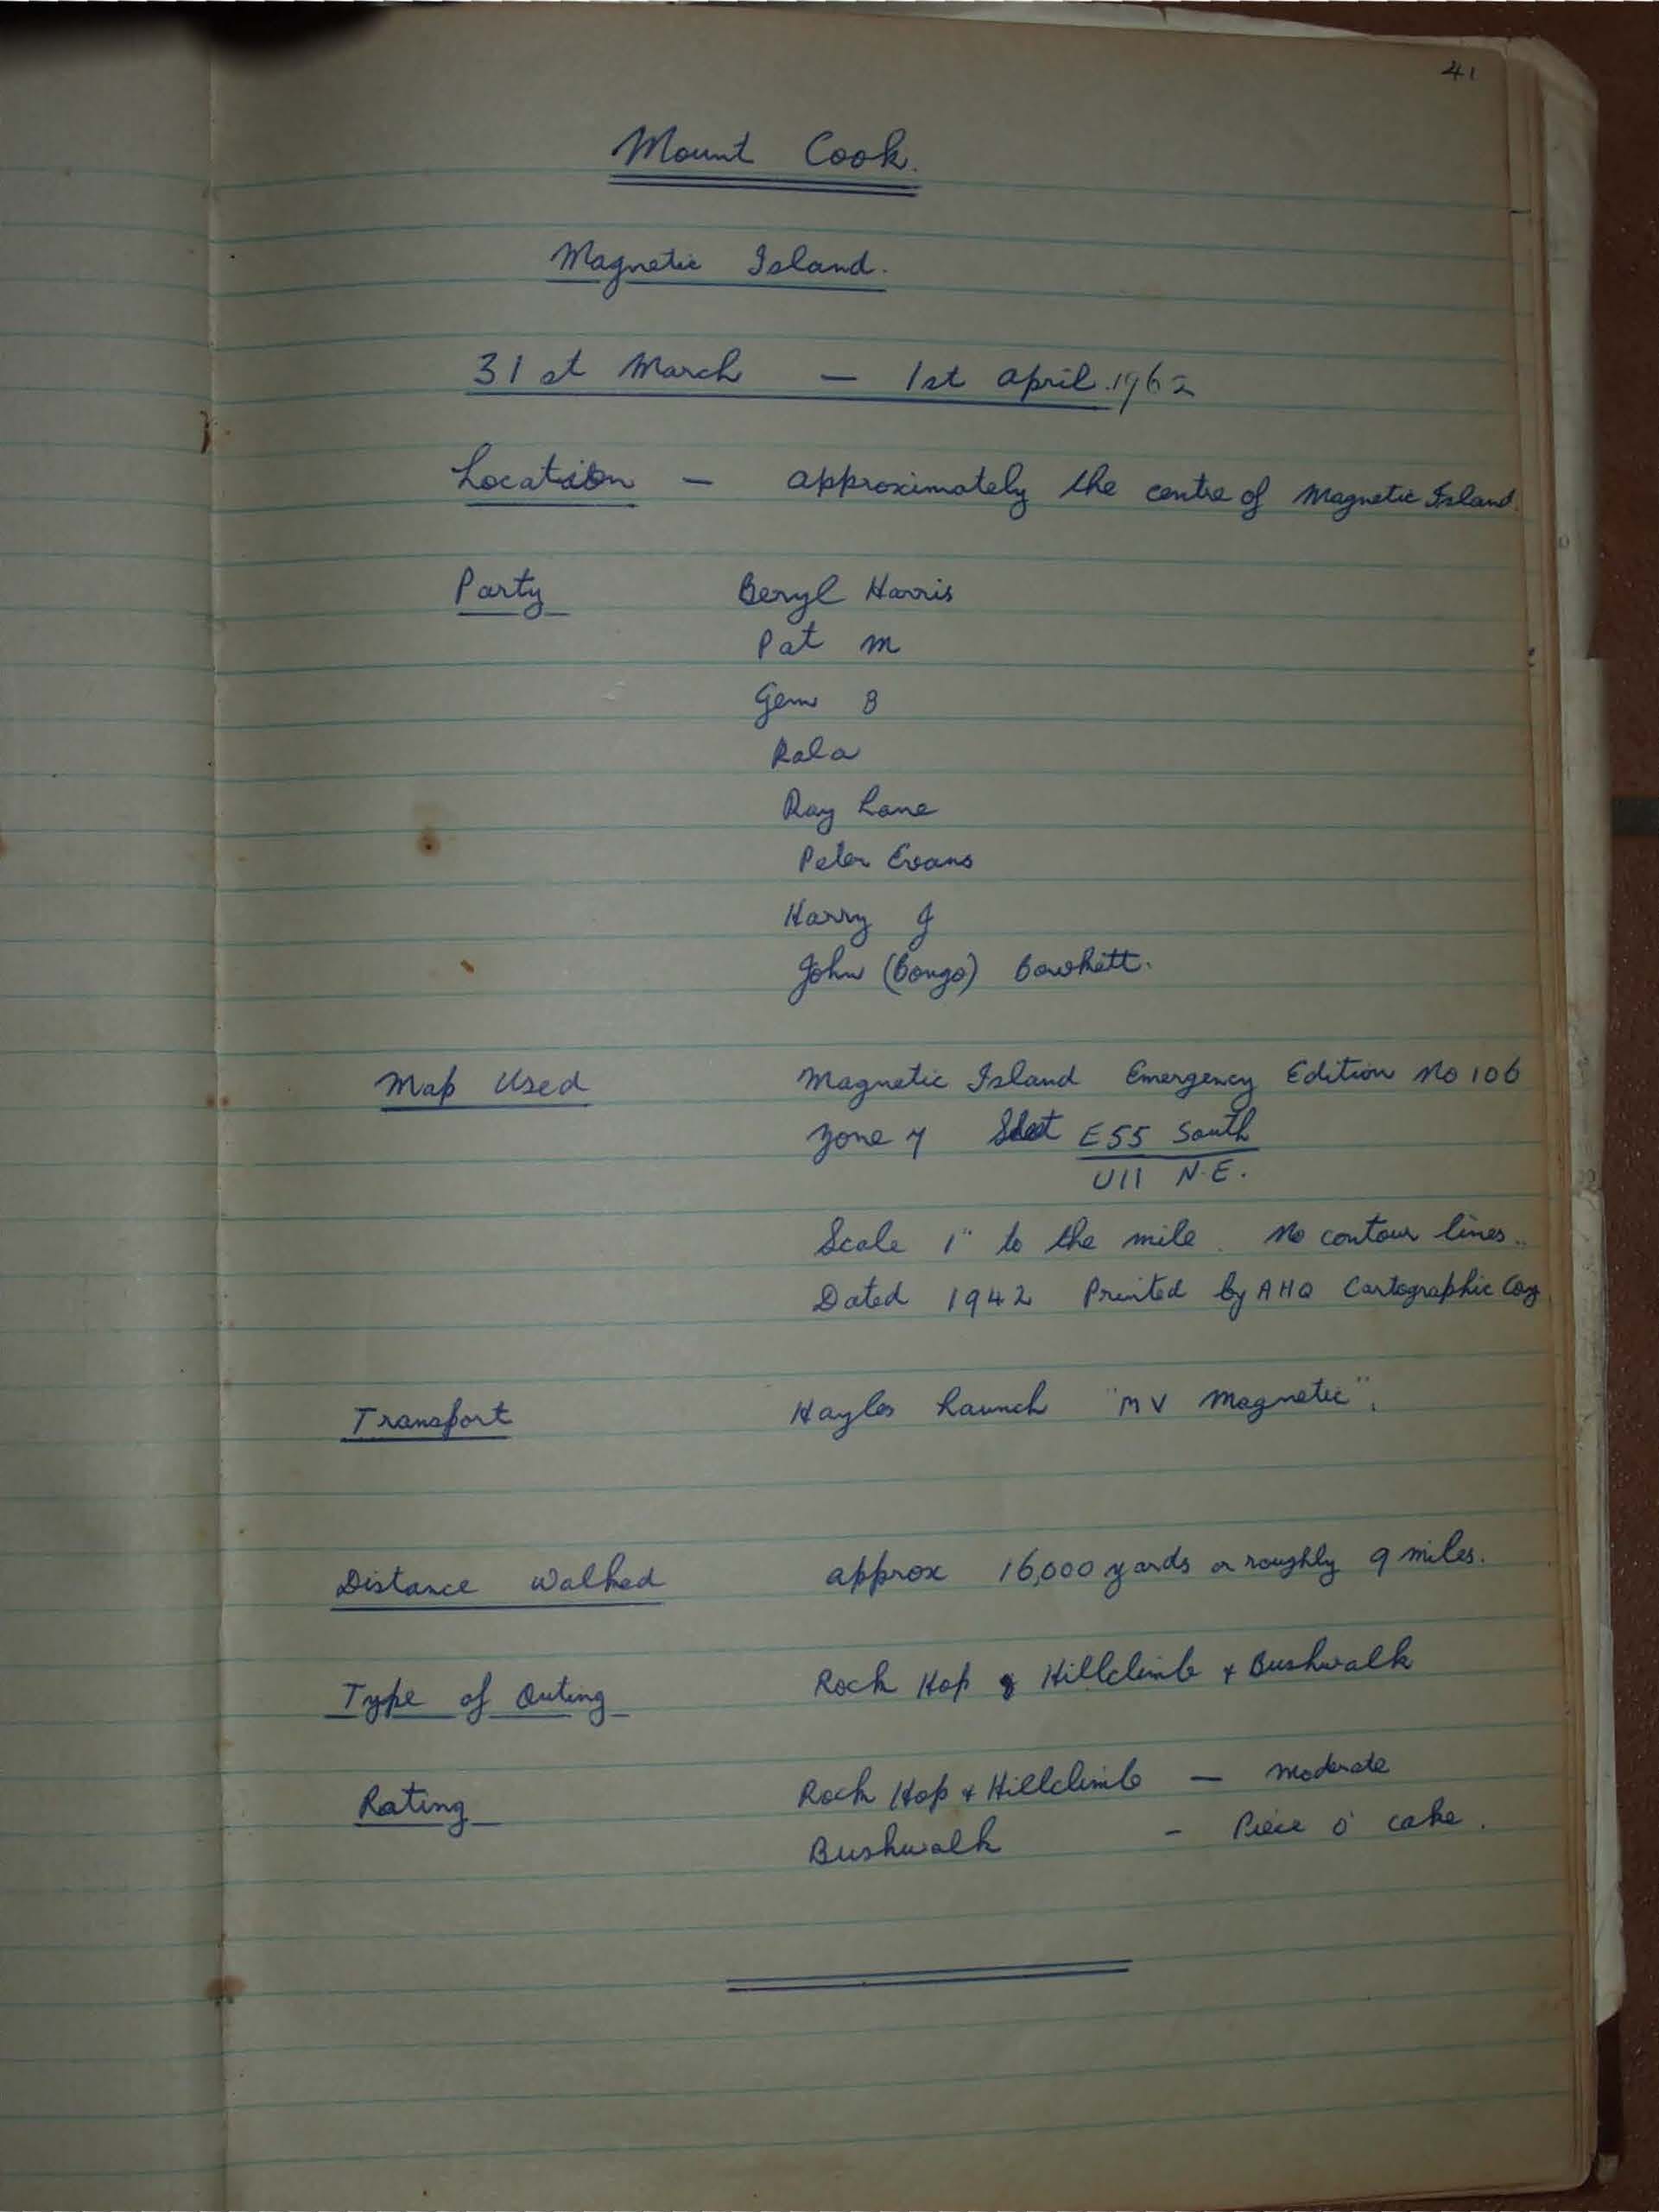 41
Mount Cook.
Magnetic Island.
31st March — 1st April 1962
Location — approximately the centre of Magnetic Island.
Party Beryl Harris
Pat M
Gem B
Rala
Ray Lane
Peter Evans
Harry J
John (Bongo) Bowhett.
Map Used Magnetic Island Emergency Edition No 106
Zone 7 Sheet E55 South
U11 N.E.
Scale 1" to the mile. No contour lines..
Dated 1942 Printed by AHQ Cartographic Coy
Transport Hayles Launch "MV Magnetic".
Distance Walked approx 16,000 yards or roughly 9 miles.
Type of Outing Rock Hop & Hillclimb & Bushwalk
Rating Rock Hop & Hillclimb — Moderate
Bushwalk - Piece o' cake.